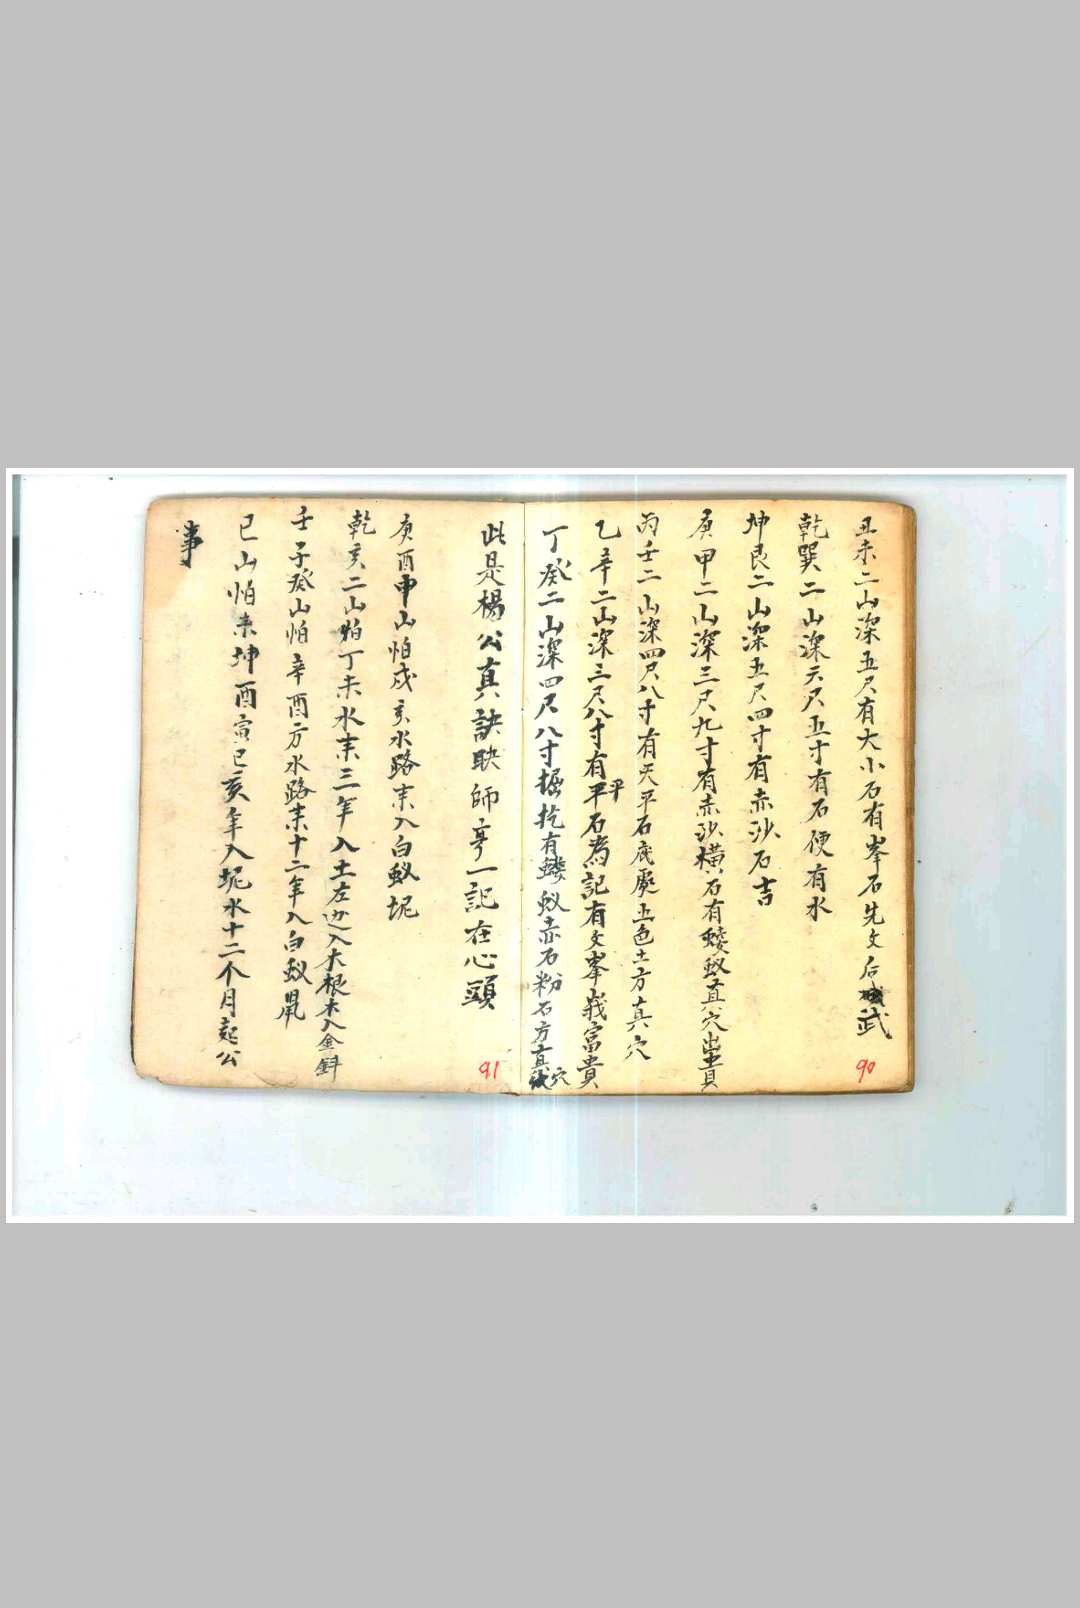 丑未二山深五尺有大小石有峯石先文后武
乾巽二山深六尺五寸有石便有水
坤艮二山深五尺四寸有赤沙石吉
庚甲二山深三尺九寸有赤沙橫石有螻蚁真穴
丙壬二山深四尺八寸有天平石底處五色土方真穴
乙辛二山深三尺八寸有平石為記有文峯峩富貴
平
丁癸二山深四尺八寸掘挖有螻蚁赤石粉石方真穴
90
此是楊公真訣 師亭一記在心頭
庚酉申山怕戍亥水路来入白蚁坭
乾亥二山怕丁未水来三年入土左边入木根木入金
壬子癸山怕辛酉方水路来十二年入白蚁鼠
巳山怕未坤酉寅巳亥年入坭水十二个月起公
事
91